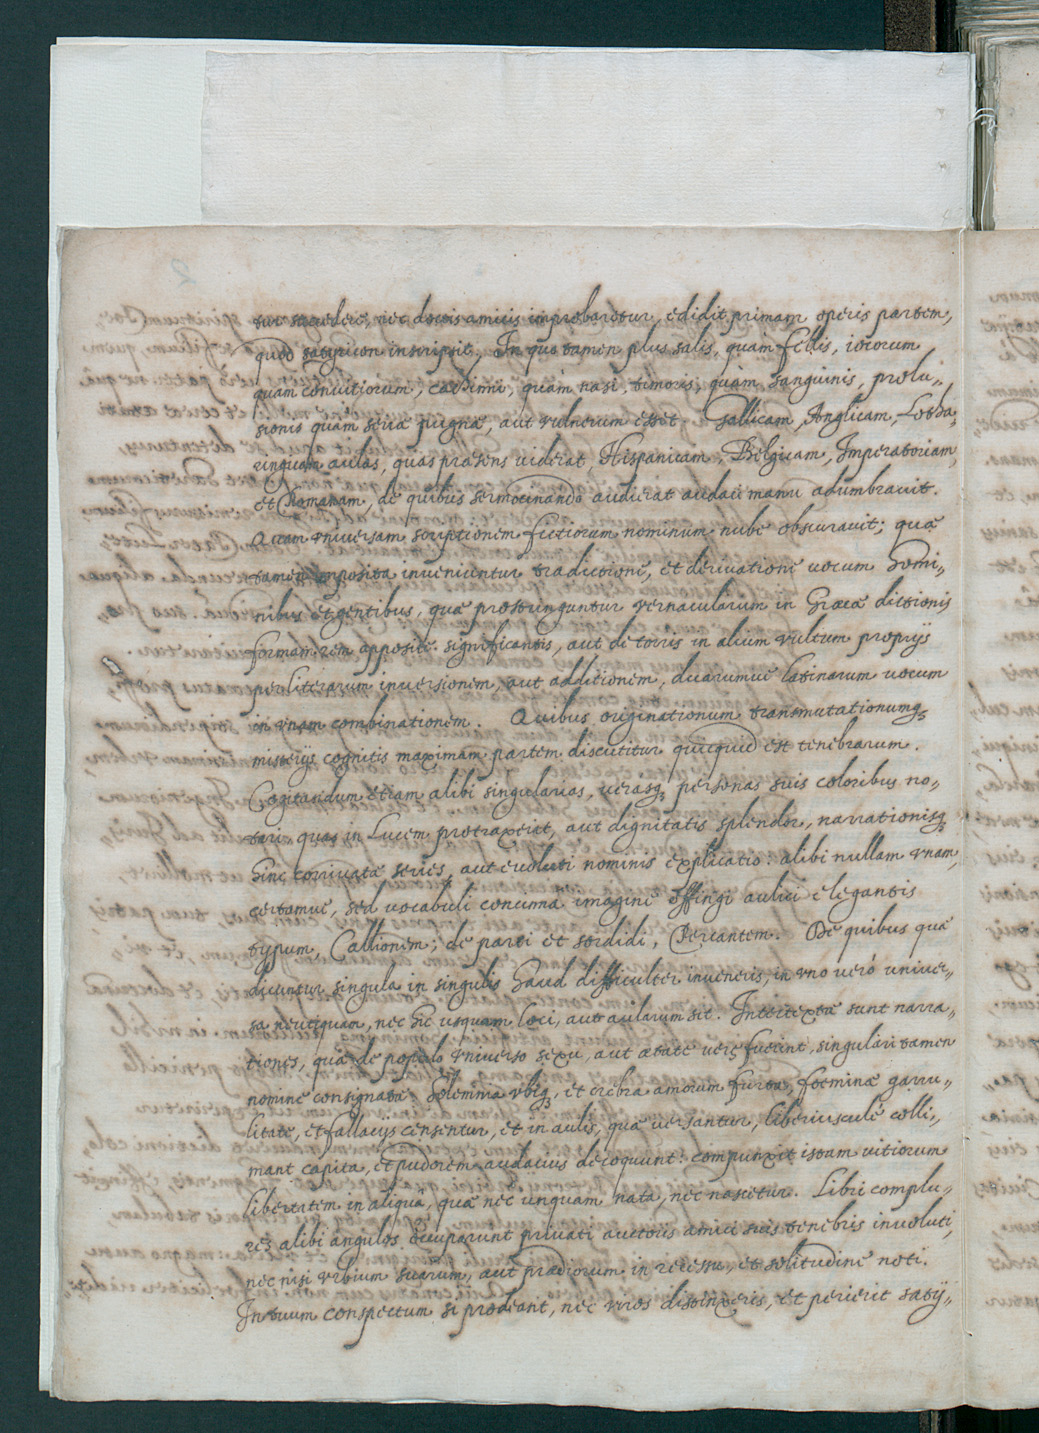 tur succedere, nec doctis amicis improbaretur, edidit primam operis partem,
quod satyricon inscripsit. In quo tamen plus salis, quàm fellis, iocorum
quam conuitiorum, cachinni, quàm nasi, timoris, quàm sanguinis, prolu„
sionis quam seriæ pugnæ, aut vulnerum esset. Gallicam, Anglicam, Lotha„
ringicam aulas, quas præsens viderat, Hispanicam, Belgicam, Imperatoriam,
et Romanam, de quibus sermocinando audierat audaci manu adumbravit.
Quam vniversam scriptionem fictiorum nominum nube obscuravit; quæ
tamen imposita inveniuntur traductione, et derivatione vocum homi„
nibus et gentibus, quæ prostringuntur vernacularum in Græcæ dictionis
formam rem appositè significantis, aut detortis in alium vultum proprijs
per literarum inversionem, aut additionem, duarumue latinarum vocum
in vnam combinationem. Quibus originationum transmutationumq3
misterijs cognitis maximam partem discutitur quicquid est tenebrarum.
Cogitandum etiam alibi singularias, verasq3 personas suis coloribus no„
tari quas in Lucem protraxerit, aut dignitatis splendor, narrationisq3
hinc corrivatæ series, aut evoluti nominis explicatio: alibi nullam vnam,
certamue, sed vocabuli concinna imagine effingi aulici elegantis
typum, Callionem; de parci et sordidi, Percantem. De quibus quæ
dicuntur singula in singulis haud difficulter inveneris, in vno verò univer„
sa neutiquam, nec hic usquam loci, aut aularum sit. Intertextæ sunt narra„
tiones, quæ de populo vniverso sexu, aut ætate veræ fuerint, singulari tamen
nomine consignatæ. Solemnia vbiq3, et crebra amorum furta, foeminæ garru„
litate, et fallacijs censentur, et in aulis, quæ versantur, liberiusculè colli„
mant capita, et pudorem audacius decoquunt: compunxit istam vitiorum
libertatem in aliqua, quæ nec unquam nata, nec nascetur. Libri complu„
res alibi angulos occuparunt privati auctoris amici suis tenebris involuti,
nec nisi vrbium suarum, aut prædiorum in recessu, et solitudine noti.
In tuum conspectum si prodeant, nec viros distinxeris, et perierit saty„